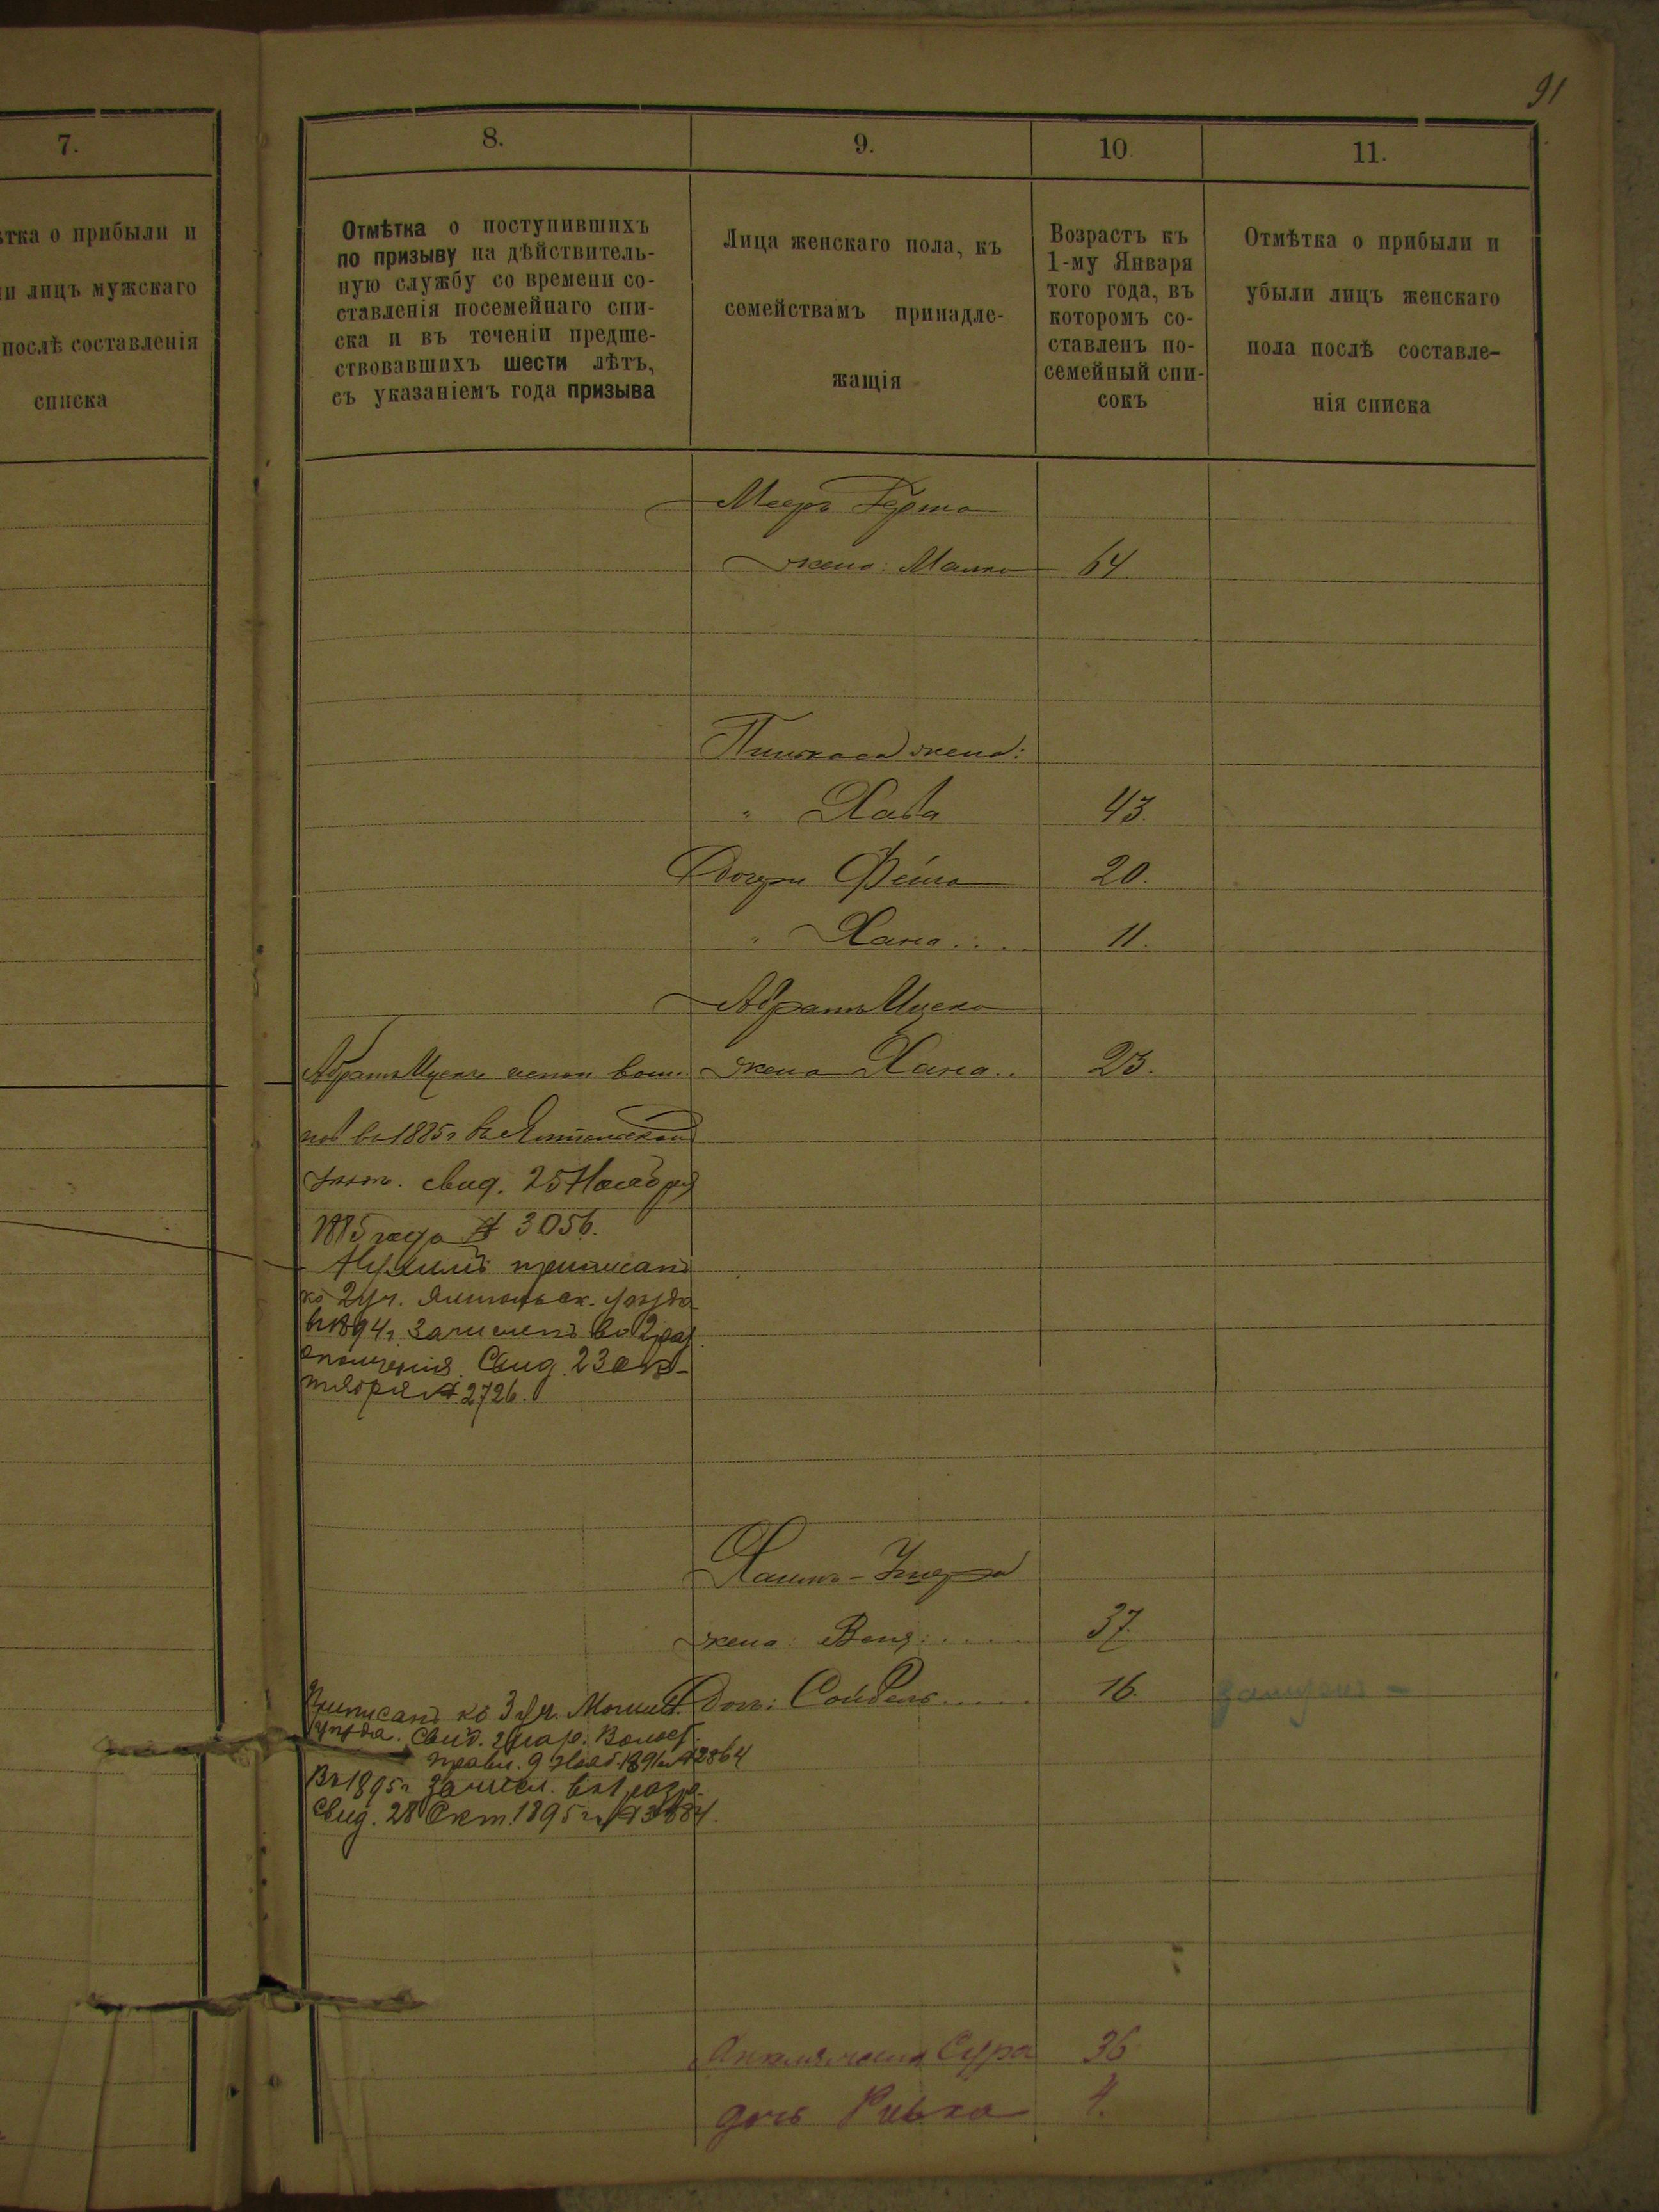 91
7.
8.
9.
10
11.
ѣтка о прибыли и
и лицъ мужскаго
послѣ составленія
списка
Отмѣтка о поступившихъ
по призыву на дѣйствитель-
ную службу со времени со-
ставленія посемейнаго спи-
ска и въ теченіи предше-
ствовавшихъ шести лѣтъ,
съ указаніемъ года призыва
Лица женскаго пола, къ
семействамъ принадле-
жащія
Возрастъ къ
1-му Января
того года, въ
которомъ со-
ставленъ по-
семейный спи-
сокъ
Отмѣтка о прибыли и
убыли лицъ женскаго
пола послѣ составле-
нія списка
Мееръ
жена: Малка 64
Пинкаса жена:
" Хава 43.
Дочери 20.
" Хана.... 11.
Абрамъ Ицека
жена Хана.. 23.
Абрамъ Ицекъ испол. воин.
пов въ 1885г въ Ямпольскомъ
свид. 25 Ноября
1885 года № 3056.
приписанъ
къ 2 уч. Ямпольск. уѣзда
въ 1894г зачисленъ во 2 раз.
ополченія. Свид. 23 ок-
тября № 2726.
Хаимъ-
жена: 37.
Приписанъ къ 3 уч. Могилев.
уѣзда. Свид. Волост.
правл. 9 Нояб. 1891 г № 2864
Въ 1895г зачисл. въ 1 разр.
Свид. 28 Окт. 1895 г. №
доч: 16.
замужем -
жена Сура 36
дочь Ривка 4.